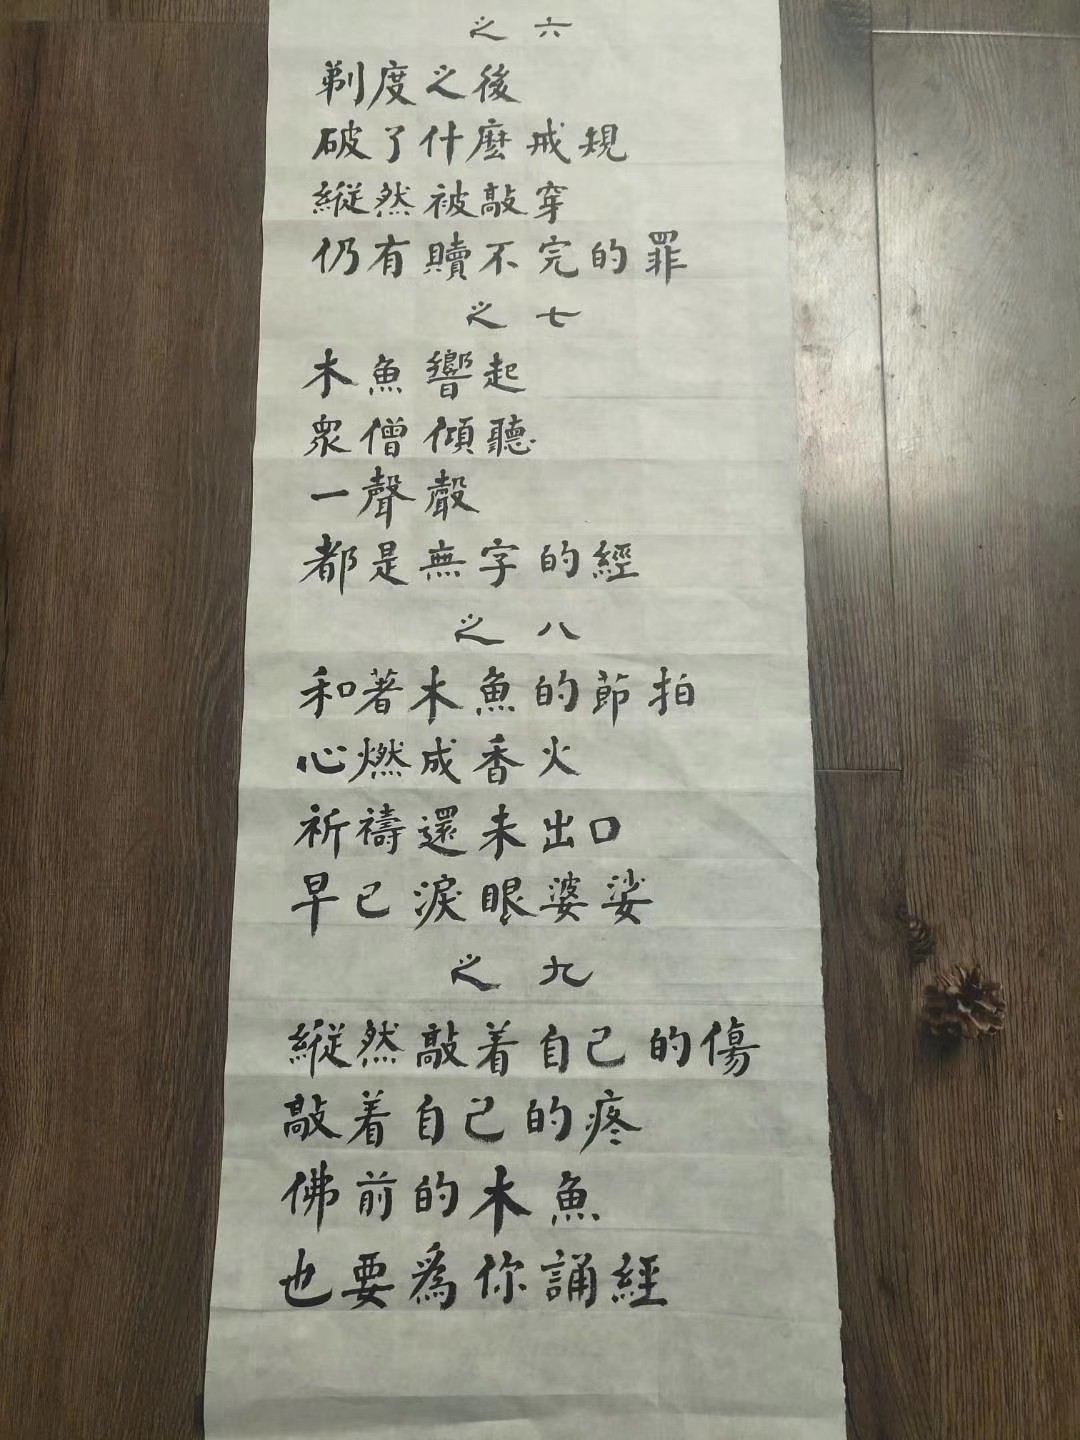 之六
剃度之後
破了什麽戒規
縱然被敲穿
仍有贖不完的罪
之七
木魚響起
眾僧傾聽
一聲聲
都是無字的經
之八
和著木魚的節拍
心燃成香火
祈禱還未出口
早已淚眼婆娑
之九
縱然敲着自己的傷
敲着自己的疼
佛前的木魚
也要爲你誦經